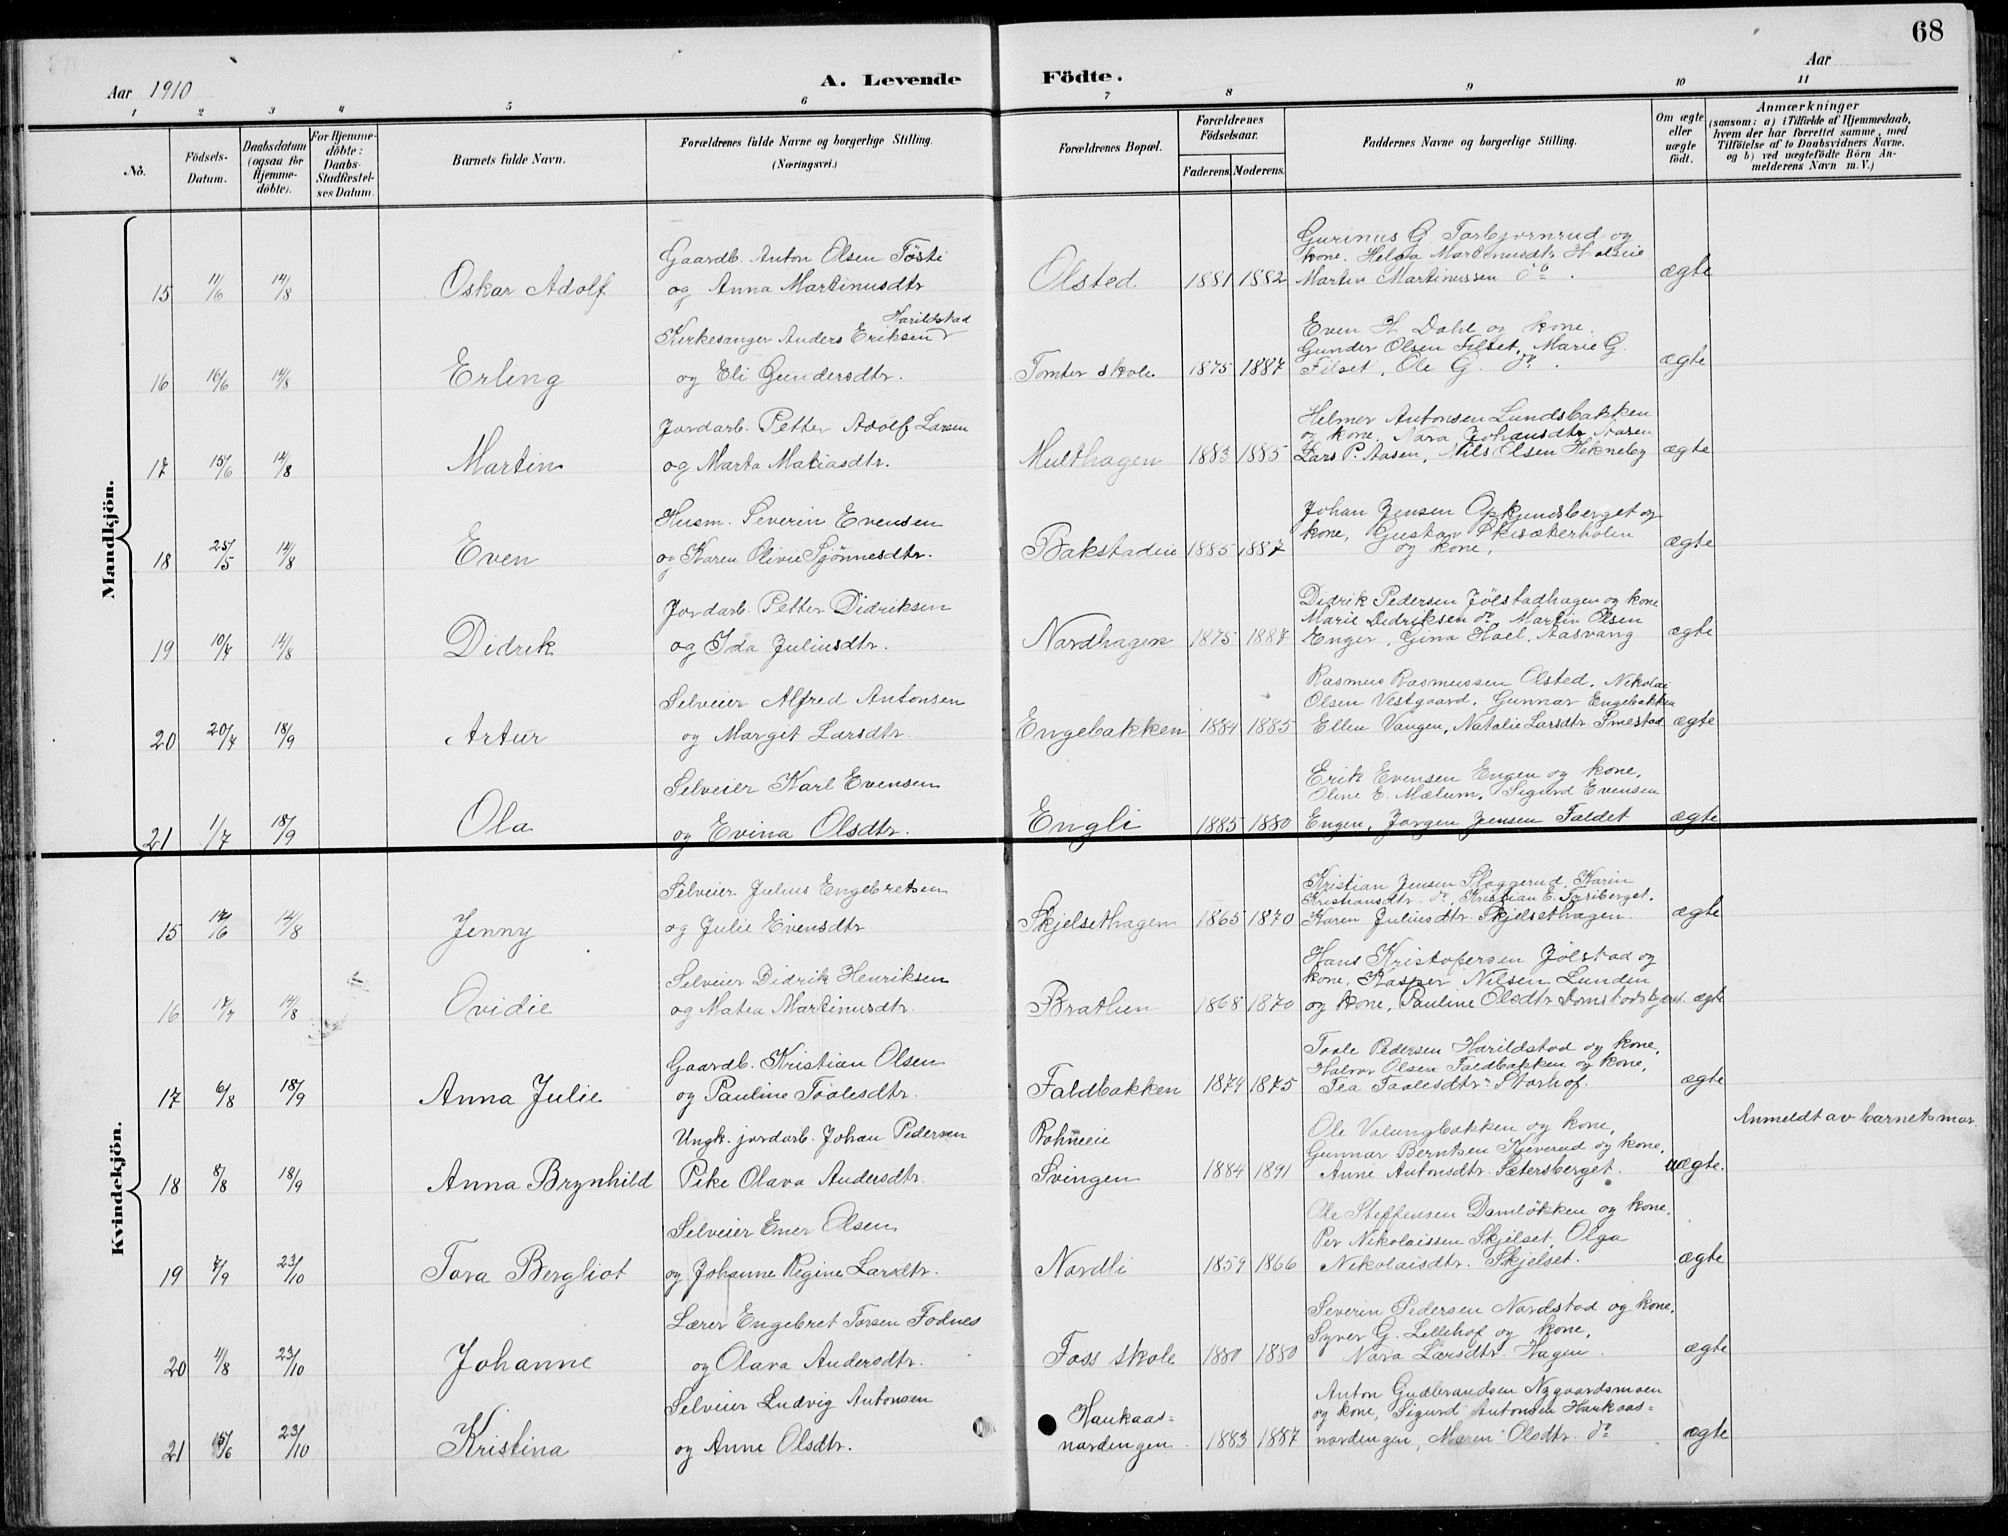 68
Aar 1910
A. Levende Födte.
Aar
1 2 3 4 5 6 7 8 9 10 11
No.
Födsels-Datum.
Daabsdatum (ogsaa for Hjemme-döbte).
For Hjemme-döbte: Daabs-Stadfestel-ses Datum.
Barnets fulde Navn.
Forældrenes fulde Navne og borgerlige Stilling. (Næringsvei.)
Forældrenes Bopæl.
Forældrenes Födselsaar.
Faderens. Moderens.
Faddernes Navne og borgerlige Stilling.
Om ægte eller uægte födt.
Anmærkninger
(saasom: a) i Tilfælde af Hjemmedaab, hvem der har forrettet samme, med Tilföielse af to Daabsvidners Navne. og b) ved uægtefödte Börn An-melderens Navn m. V.)
Mandkjön.
Gaardb. Anton Olsen Tøsti
Gurinus G. Torbjørnrud og
kone. Helga Martinusdtr. Holseie
15 11/6 14/8 Oskar Adolf og Anna Martinusdtr Olsted 1881 1882 Martin Martinussen do. ægte
Harildstad
Kirkesanger Anders Eriksen
Even H. Dahl og kone.
Gunder Olsen Filset, Marie G.
16 16/6 14/8 Erling og Eli Gundersdtr. Tomter skole 1875 1887 Filset, Ole G. do. ægte
Jordarb. Petter Adolf Larsen
Helmer Antonsen Lundsbakken
og kone. Nora Johansdtr Aasen
17 15/6 14/8 Martin og Marta Matiasdtr. Multhagen 1883 1885 Lars P. Aasen, Nils Olsen Hekneby ægte
Husm. Severin Evensen
Johan Jensen Opkjunsberget og
kone, Gustav Skisæterholen
18 25/5 14/8 Even og Karen Olivie Sjønnesdtr. Bakstadeie 1885 1887 og kone. ægte
Jordarb. Petter Didriksen
Didrik Pedersen Jølstadhagen og kone
Marie Didriksen do, Martin Olsen
19 10/7 14/8 Didrik og Ida Juliusdtr. Nordhagen 1875 1887 Enger, Gina Hoel. Aasvang ægte
Selveier Alfred Antonsen
Rasmus Rasmussen Olsted. Nikolai
Olsen Vestgaard. Gunnar Engebakken
20 20/7 18/9 Artur og Marget Larsdtr. Engebakken 1884 1885 Ellen Vangen, Natalie Larsdtr Smestad ægte
Selveier Karl Evensen
Erik Evensen Engen og kone,
Oline E. Mælum, Sigurd Evensen
21 1/7 18/9 Ola og Evina Olsdtr. Engli 1885 1880 Engen, Jørgen Jensen Faldet ægte
Kvindekjön.
Selveier Julius Engebretsen
Kristian Jensen Sloggerud, Karin
Kristiansdtr. do, Kristian E. Tyriberget.
15 17/6 14/8 Jenny og Julie Evensdtr Skjelsethagen 1865 1870 Karen Juliusdtr. Skjelsethagen. ægte
Selveier Didrik Henriksen
Hans Kristopersen Jølstad og
kone, Kasper Nilsen Lunden
16 17/7 14/8 Ovidie og Matea Martinusdtr. Bratlien 1868 1870 og kone, Pauline Olsdtr ægte
Gaardb. Kristian Olsen
Taale Pedersen Harildstad og kone.
Halvor Olsen Faldbakken og kone,
17 6/8 18/9 Anna Julie og Pauline Taalesdtr. Faldbakken 1874 1875 Tea Taalesdtr. Storhof. ægte
Ungk. jordarb. Johan Pedersen Rohneeie Ole Volungbakken og kone, Anmeldt av barnets mor.
Gunnar Berntsen Kjeverud og kone,
18 8/8 18/9 Anna Brynhild Pike Olava Andersdtr. Svingen 1884 1891 Anne Antonsdtr. Sætersberget. uægte.
Selveier Ener Olsen
Ole Steffensen Damløkken og kone,
Per Nikolaissen Skjelset, Olga
19 7/9 23/10 Tora Bergliot og Johanne Regine Larsdtr. Nordli 1859 1866 Nikolaisdtr. Skjelset. ægte
Lærer Engebret Torsen Fodnes
Severin Pedersen Nordstad og kone,
Syver G. Lillehof og kone,
20 4/8 23/10 Johanne og Olava Andersdtr. Foss skole 1880 1880 Nora Larsdtr. Hagen. ægte
Selveier Ludvig Antonsen Haukaas=
Anton Gudbrandsen Nygaardsmoen
og kone, Sigurd Antonsen Haukaas=
21 15/6 23/10 Kristina og Anne Olsdtr. nordengen 1883 1887 nordengen, Maren Olsdtr. do ægte